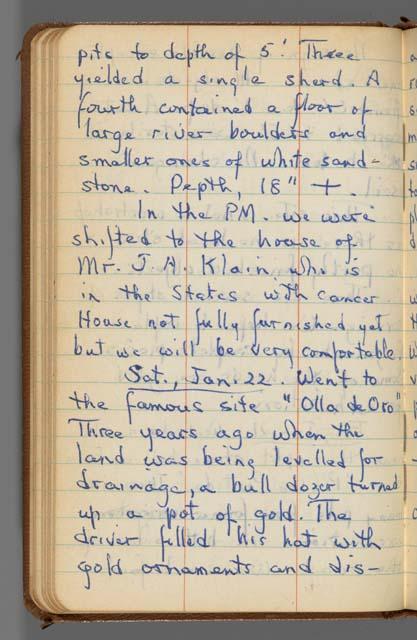 pits to depth of 5'. Three
yielded a single sherd. A
fourth contained a floor of
large river boulders and
smaller ones of white sand-
stone. Depth, 18" +.
In the PM. we were
shifted to the house of
Mr. J. A. Klain who is
in the States with cancer
House not fully furnished yet
but we will be very comfortable.
Sat., Jan. 22. Went to
the famous site "Olla de Oro"
Three years ago when the
land was being levelled for
drainage, a bull dozer turned
up a pot of gold. The
driver filled his hat with
gold ornaments and dis-